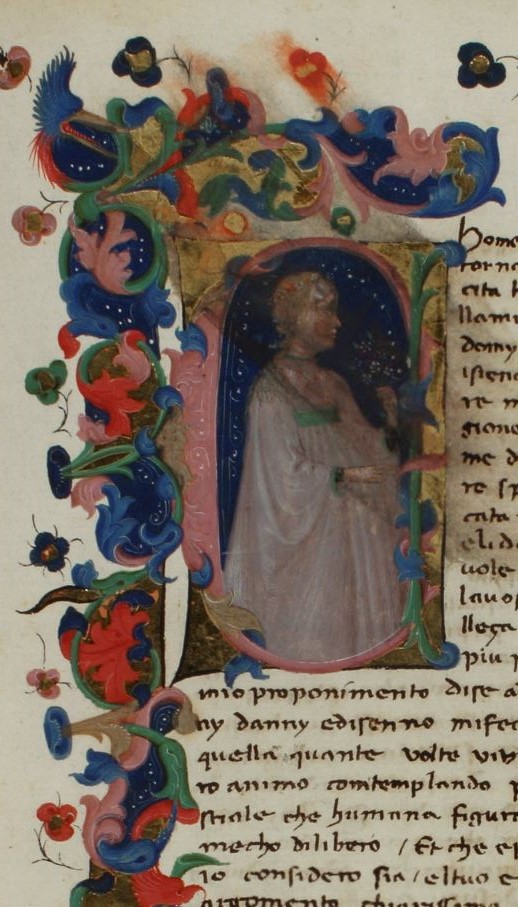 home
torna
cita
llami
demy
isien
re m
gione
me d
re sp
cata
eli d
uole
lauo
llega
piu p
mio proponimento dise a
ny danny edisenno mifec
quella quante volte vin
ro animo comtemplando p
stiale che humana figura
mecho dilibero / Et che
io considero sia / eltuo e
argomento chiarissimo